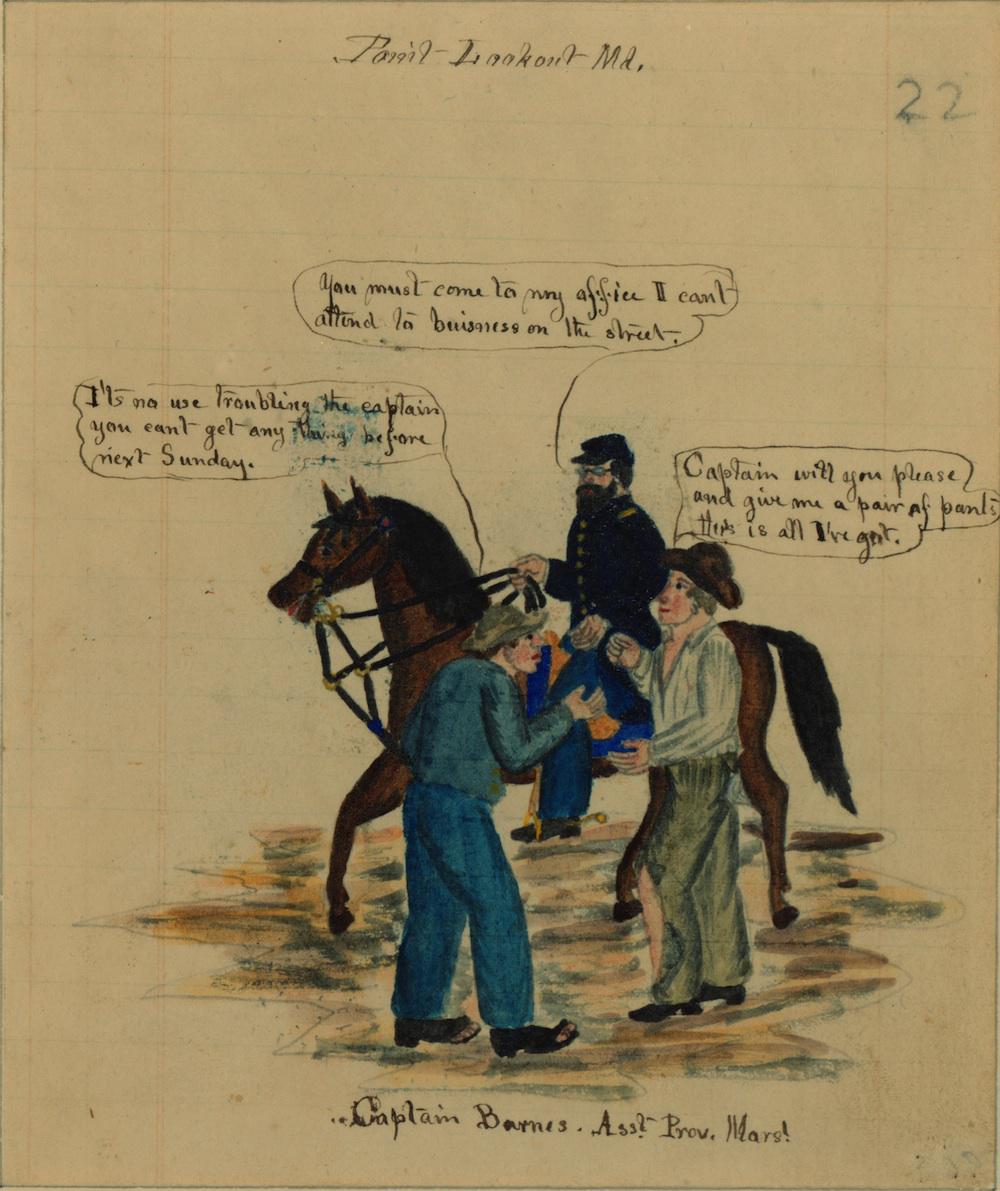 Point Lookout Md.
22
You must come to my office I cant
attend to buisness on the street.
I'ts no use troubling the captain
you cant get any thing before
next Sunday.
Captain will you please
and give me a pair of pants
this is all I've got.
Captain Barnes. Asst. Prov. Mars!